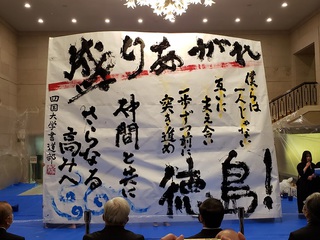 盛りあがれ
僕らは
一人じゃない
互いに
支え合い
一歩ずつ前に
突き進め
徳島!
仲間と共に
さらなる
高みへ
四国大学書道部